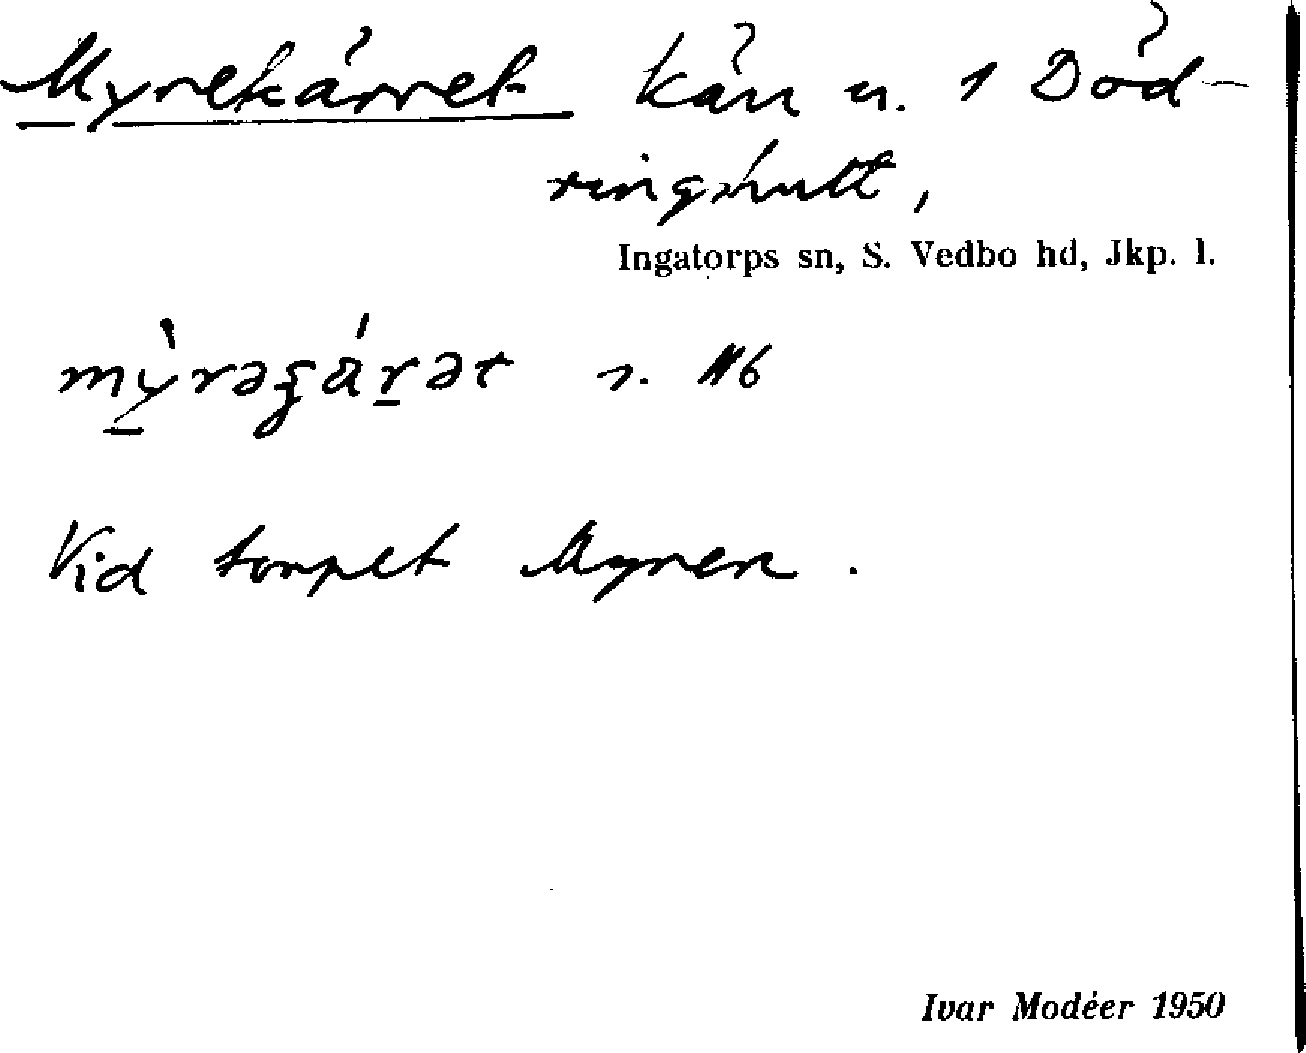 Myrekärret kärr u. 1 Död-
ringshult,
Ingatorps sn, S. Vedbo hd, Jkp. l.
mỳ̱rəgá̈ṟət s. 116
Vid torpet Myren.
Ivar Modéer 1950